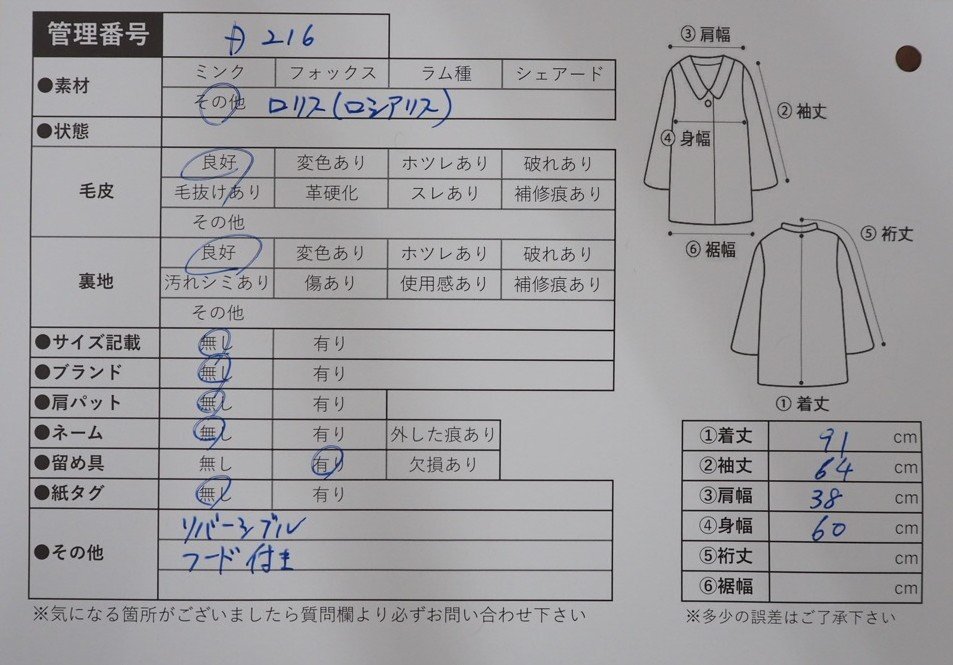 管理番号 A 216
●素材 ミンク フォックス ラム種 シェアード
その他 ロリス(ロシアリス)
●状態
毛皮 良好 変色あり ホツレあり 破れあり
毛抜けあり 革硬化 スレあり 補修痕あり
その他
裏地 良好 変色あり ホツレあり 破れあり
汚れシミあり 傷あり 使用感あり 補修痕あり
その他
●サイズ記載 無し 有り
●ブランド 無し 有り
●肩パット 無し 有り
●ネーム 無し 有り 外した痕あり
●留め具 無し 有り 欠損あり
●紙タグ 無し 有り
●その他 リバーシブル
フード付き
※気になる箇所がございましたら質問欄より必ずお問い合わせ下さい
③肩幅
②袖丈
④身幅
⑥裾幅
⑤裄丈
①着丈
①着丈 91 cm
②袖丈 64 cm
③肩幅 38 cm
④身幅 60 cm
⑤裄丈 cm
⑥裾幅 cm
※多少の誤差はご了承下さい